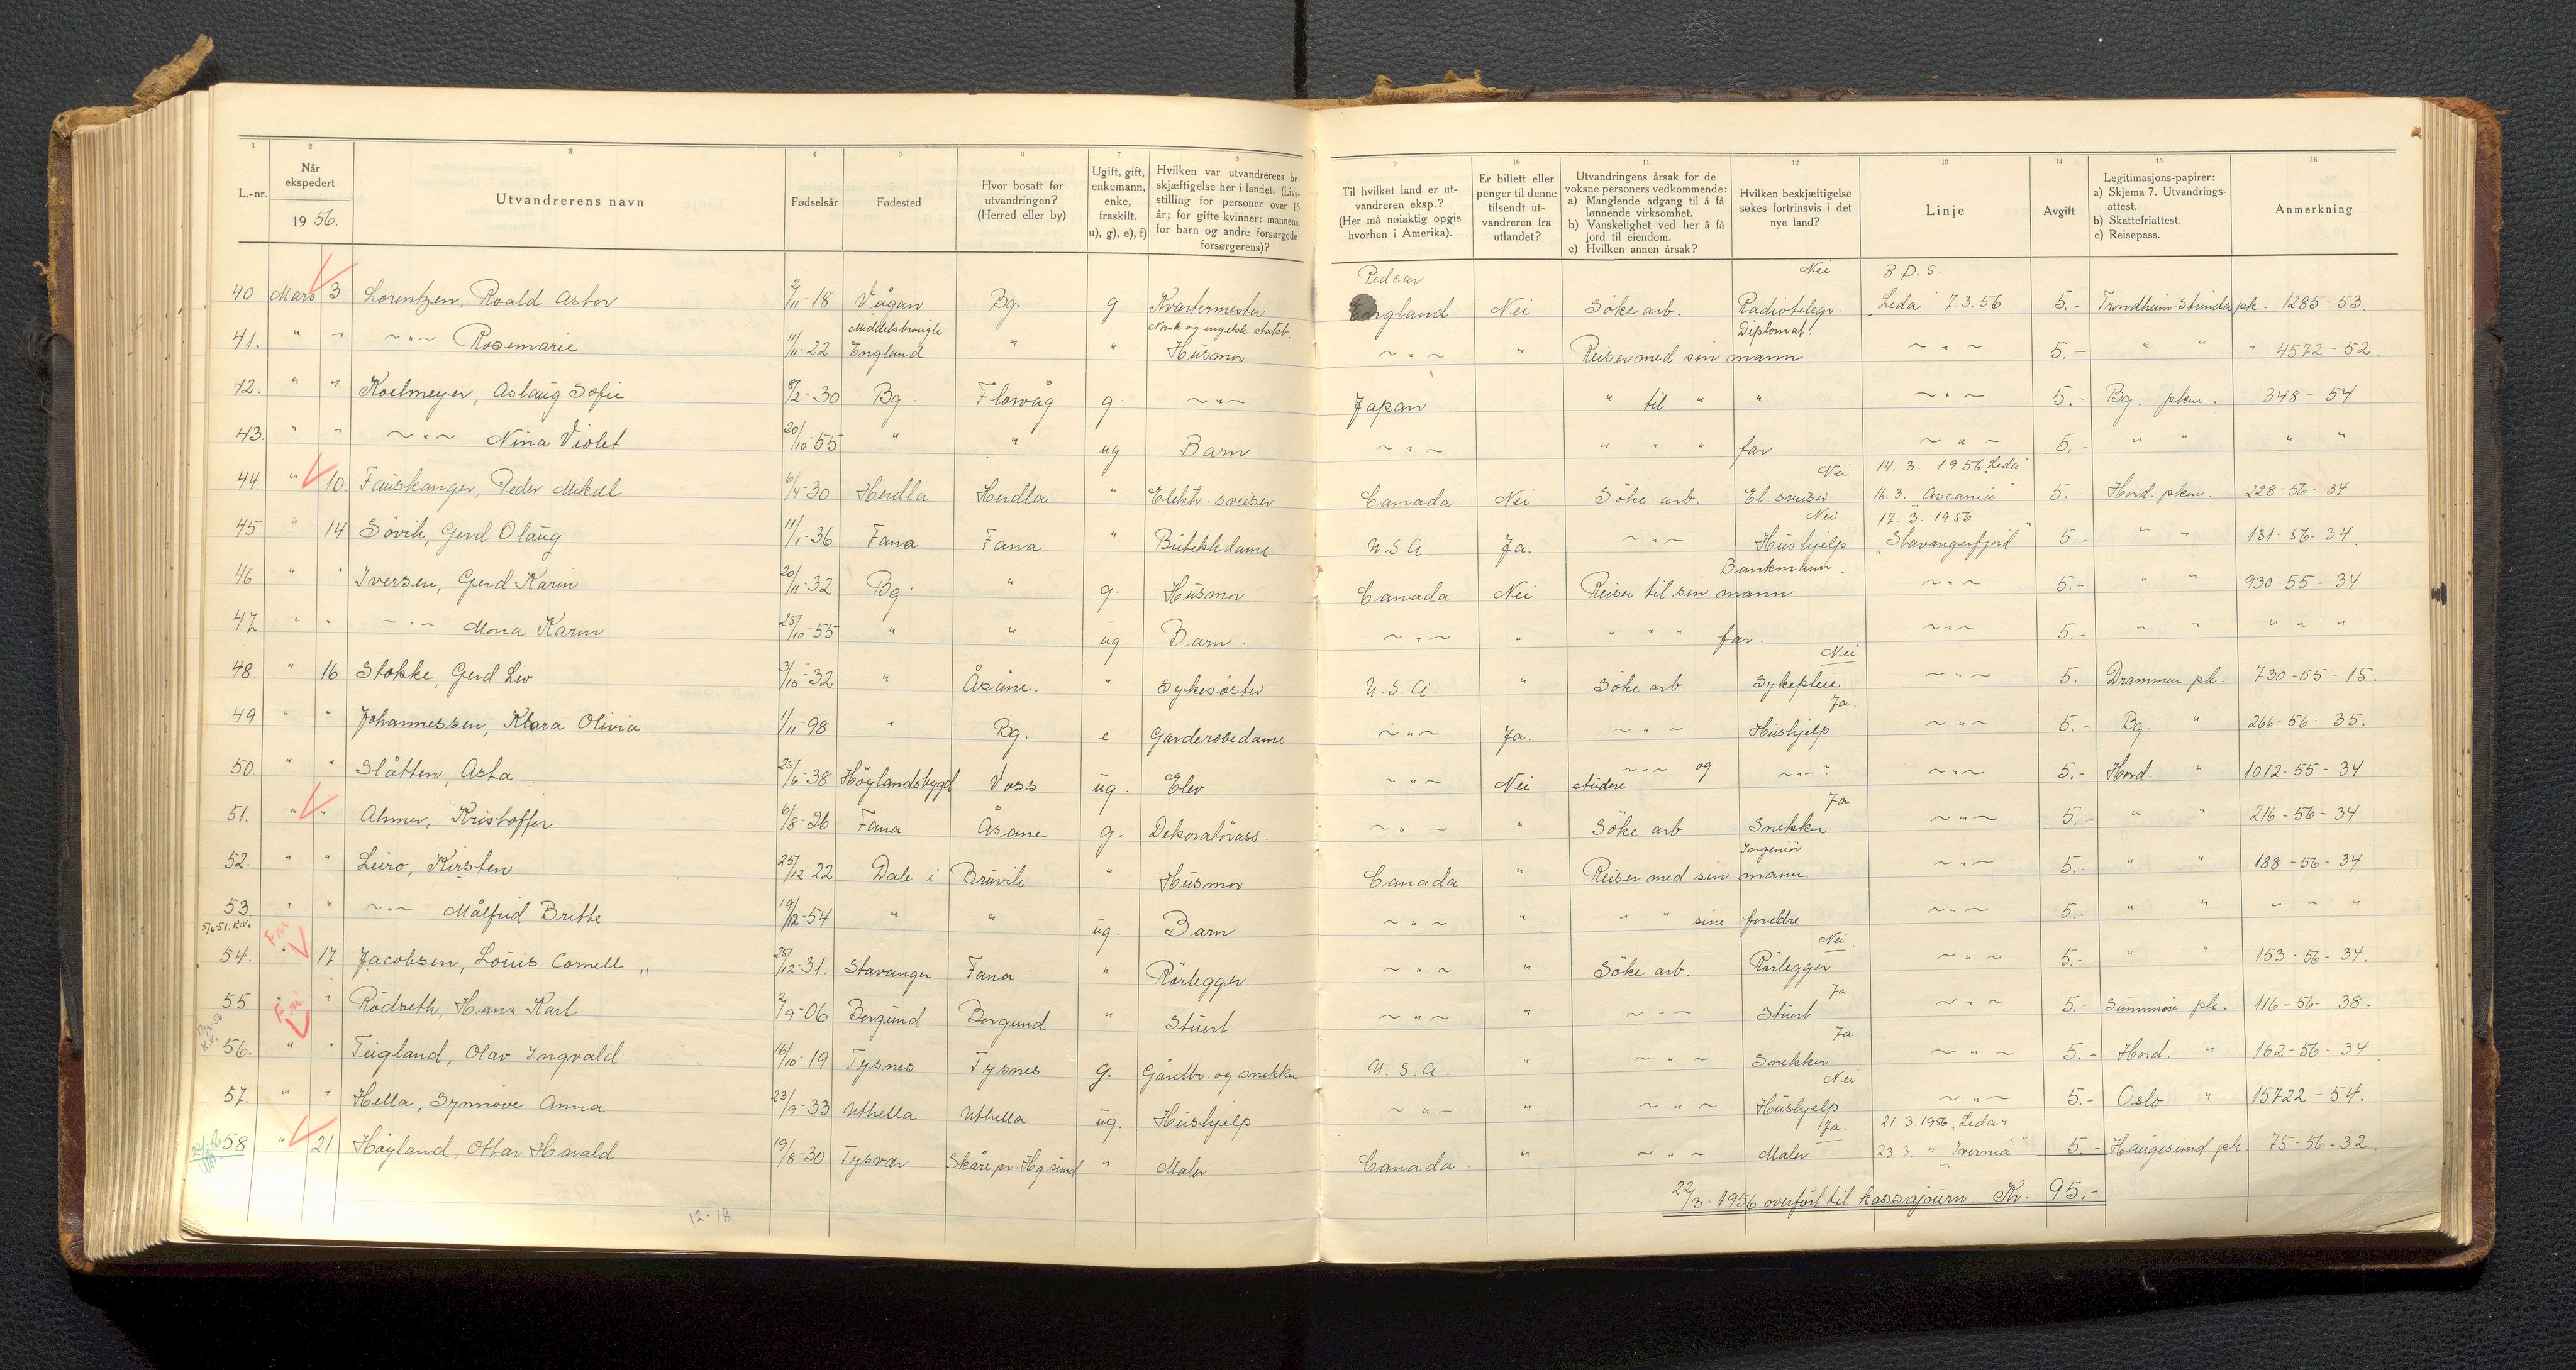 1 2 3 4 5 6 7 8 9 10 11 12 13 14 15 16
L.-nr. Når ekspedert 1956. Utvandrerens navn Fødselsår Fødested Hvor bosatt før utvandringen? (Herred eller by) Ugift, gift, enkemann, enke, fraskilt. u), g), e), f) Hvilken var utvandrerens beskjæftigelse her i landet. (Livsstilling for personer over 15 år; for gifte kvinner: mannens, for barn og andre forsørgede: forsørgerens)? Til hvilket land er utvandreren eksp.? (Her må nøiaktig opgis hvorhen i Amerika). Er billett eller penger til denne tilsendt utvandreren fra utlandet? Utvandringens årsak for de voksne personers vedkommende: a) Manglende adgang til å få lønnende virksomhet. b) Vanskelighet ved her å få jord til eiendom. c) Hvilken annen årsak? Hvilken beskjæftigelse søkes fortrinsvis i det nye land? Linje Avgift Legitimasjons-papirer: a) Skjema 7. Utvandringsattest. b) Skattefriattest. c) Reisepass. Anmerkning
Redcar Nei B.D.S.
40 Mars 3 Lorentzen, Roald Astor 2/11-18 Vågan Bg. g Kvartermester England Nei Söke arb. Radiotelegr. "Leda" 7.3.56 5.- Trondheim-Strinda pk. 1285-53
Middelsbrough Norsk og engelsk statsb. Diplomat!
41. " " ~"~ Rosemarie 11/11-22 England " " Husmor ~"~ " Reiser med sin mann ~"~ 5.- " " " 4572-52.
42. " " Koelmeyer, Aslaug Sofie 8/2-30 Bg. Florvåg g. ~"~ Japan " til " " ~"~ 5.- Bg. pkm. 348-54
43. " " ~"~ Nina Violet 20/10-55 " " ug Barn ~"~ " " " far ~"~ 5.- " " " "
Nei 14.3. 1956 "Leda"
44. " 10. Fauskanger, Peder Mikal 6/4-30 Herdla Herdla " Elektr. sveiser Canada Nei Söke arb. El. sveiser 16.3. "Ascania" 5.- Hord. pkm. 228-56-34
Nei 17.3.1956
45. " 14 Sövik, Gerd Olaug 11/1-36 Fana Fana " Butikkdame U.S.A. Ja. ~"~ Hushjelp "Stavangerfjord" 5.- " " 131-56-34.
Bankmann.
46 " " Iversen, Gerd Karin 20/11-32 Bg. " g. Husmor Canada Nei Reiser til sin mann ~"~ 5.- " " 930-55-34
47. " " ~"~ Mona Karin 25/10-55 " " ug. Barn. ~"~ " " " " far. ~"~ 5.- " " " " "
Nei
48. " 16 Stokke, Gerd Liv 3/10-32 " Åsane. " Sykesöster U.S.A. " Söke arb. Sykepleie ~"~ 5. Drammen pk. 730-55-15.
Ja.
49 " " Johannessen, Klara Olivia 1/11-98 " Bg. e Garderobedame ~"~ Ja. ~"~ Hushjelp ~"~ 5.- Bg. " 266-56-35.
50. " " Slåtten, Asta 25/6-38 Höylandsbygd Voss ug. Elev ~"~ Nei ~"~ og studere ~"~ ~"~ 5.- Hord. " 1012-55-34
Ja
51. " " Ahmer, Kristoffer 6/8-26 Fana Åsane g. Dekoratörass. ~"~ " Söke arb. Snekker ~"~ 5.- " " 216-56-34
Ingeniör
52. " " Leiro, Kirsten 25/12 22 Dale i Bruvik " Husmor Canada " Reiser med sin mann ~"~ 5.- " " 188-56-34
53. " " ~"~ Målfrid Britte 19/12-54 " " ug. Barn ~"~ " " " sine foreldre ~"~ 5.- " " " " "
Fm Nei.
54. " 17 Jacobsen, Louis Cornell 25/12-31. Stavanger Fana " Rörlegger ~"~ " Söke arb. Rörlegger ~"~ 5.- " " 153-56-34.
Fm Ja
55 " " Rödseth, Hans Karl 2/9-06 Borgund Borgund " Stuert ~"~ " ~"~ Stuert ~"~ 5.- Sunnmöre pk. 116-56-38.
Ja
56. " " Teigland, Olav Ingvald 16/10-19 Tysnes Tysnes g. Gårdbr. og snekker U.S.A. " ~"~ Snekker ~"~ 5.- Hord. " 162-56-34
Nei
57. " " Hella, Synnöve Anna 23/9-33 Uthella Uthella ug. Hushjelp ~"~ " ~"~ Hushjelp ~"~ 5.- Oslo " 15722-54.
Ja. 21.3.1956 "Leda"
58 " 21 Höyland, Ottar Harald 19/8-30 Tysvær Skåre pr. Hg sund " Maler Canada " ~"~ Maler 23.3. "Ivernia" 5.- Haugesund pk 75-56-32.
22/3-1956 overfört til kassajourn Kr. 95.-
12-18